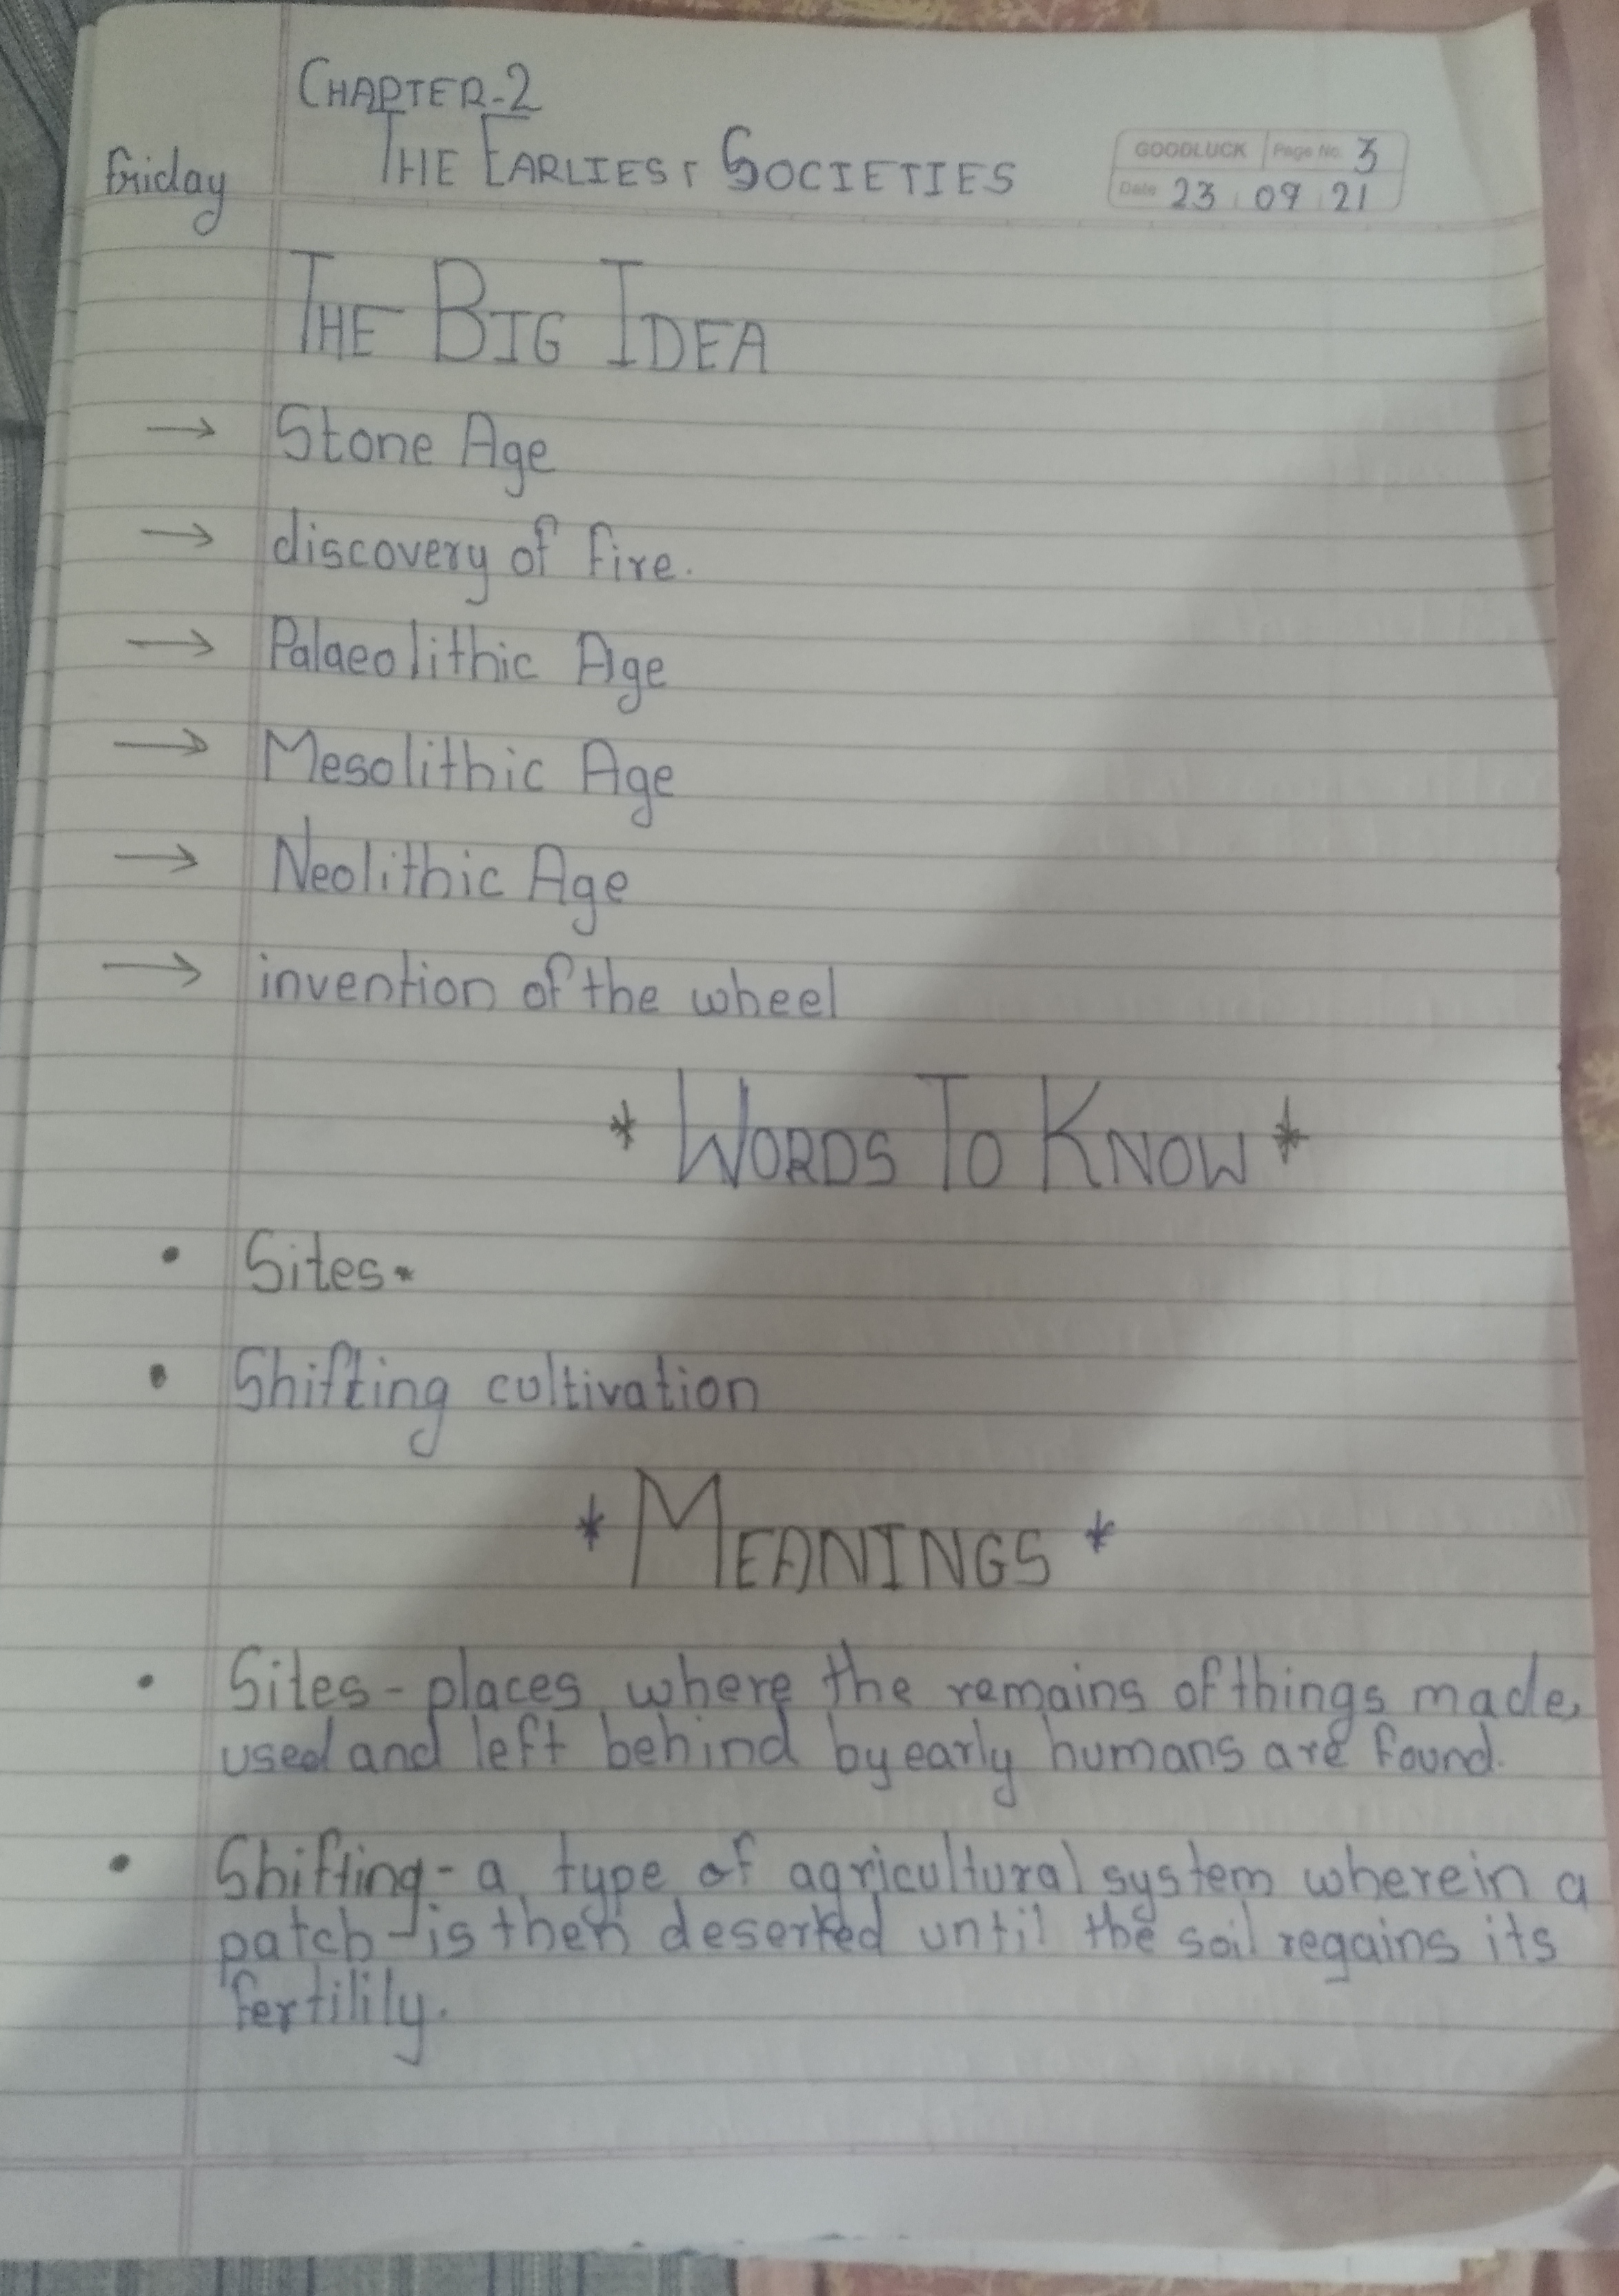 CHAPTER-2
THE EARLIEST SOCIETIES
GOODLUCK Page No. 3
Friday
Date 23 09 21
THE BIG IDEA
→ Stone Age
→ discovery of fire.
→ Palaeolithic Age
→ Mesolithic Age
→ Neolithic Age
→ invention of the wheel
* WORDS TO KNOW *
• Sites
• Shifting cultivation
* MEANINGS *
• Sites - places where the remains of things made,
used and left behind by early humans are found.
• Shifting - a type of agricultural system wherein a
patch is then deserted until the soil regains its
fertilily.